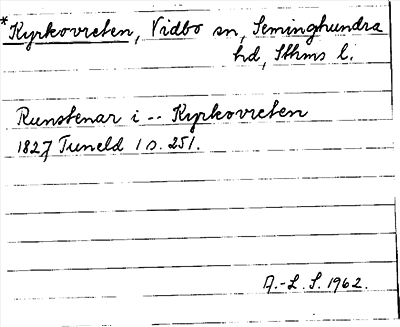 *Kyrkovreten, Vidbo sn, Seminghundra
hd, Sthms l.
Runstenar i -- Kyrkovreten
1827 Tuneld 1 s. 251.
A.-L. S. 1962.